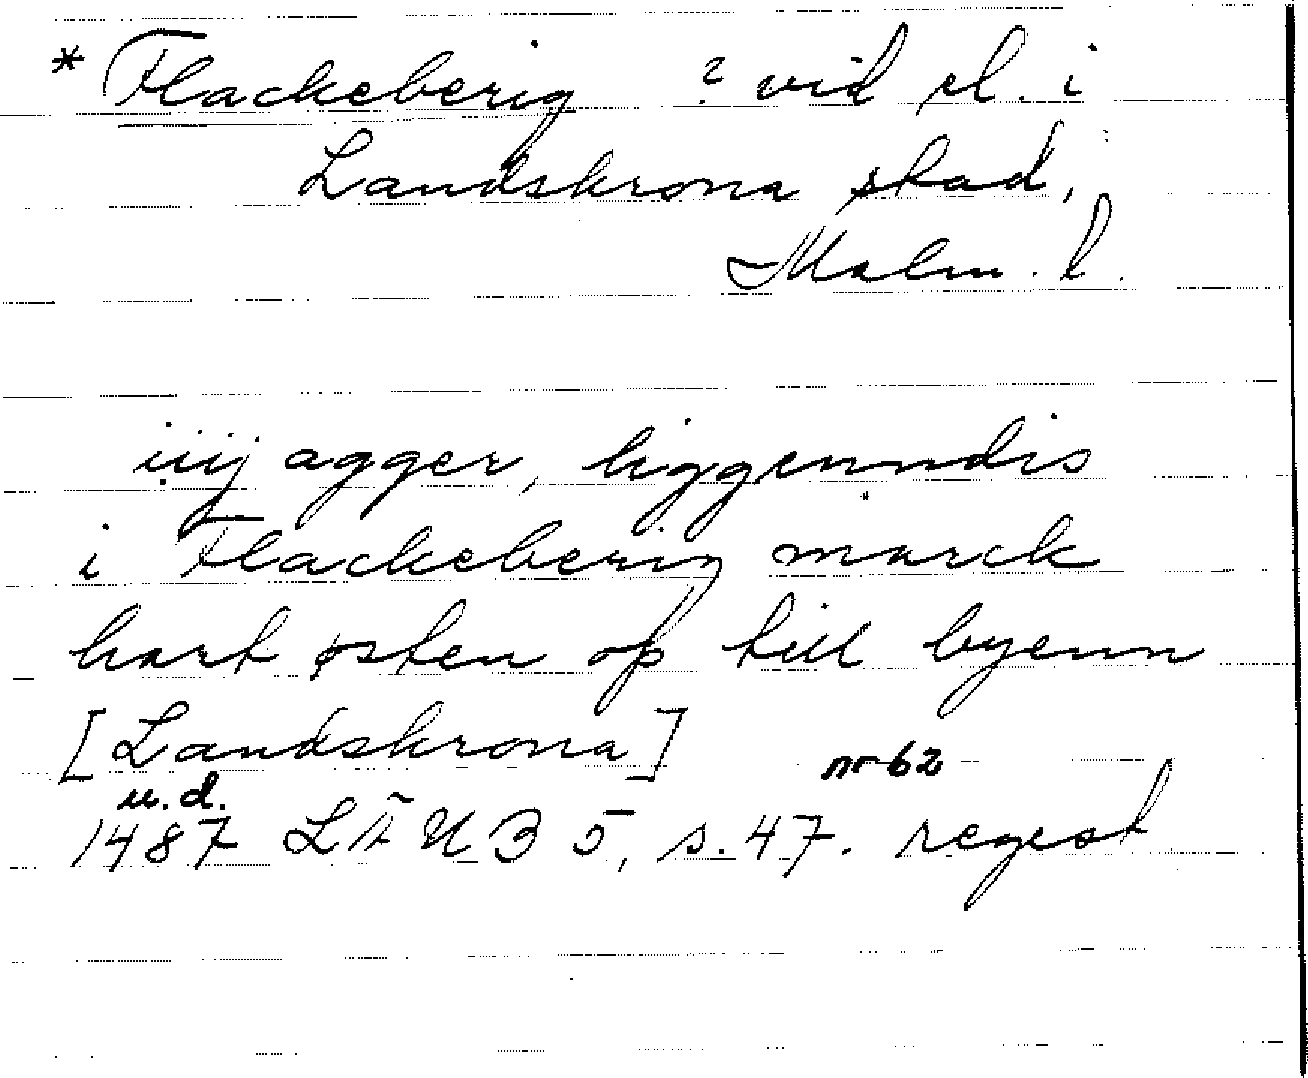 * Flackeberig ? vid el. i
Landskrona stad,
Malm. l.
iiij agger, liggenndis
i Flackeberig marck
hart østen op till byenn
[Landskrona]
nr 62
u.d.
1487 LÄUB 5, s. 47. regest